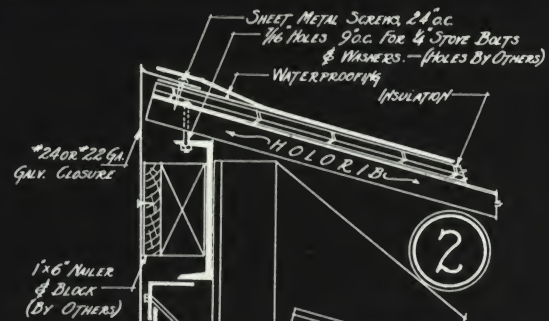 SHEET METAL SCREWS, 24" O.C.
7/16" HOLES 9" O.C. FOR 1/4" STOVE BOLTS
& WASHERS.—(HOLES BY OTHERS)
WATERPROOFING
INSULATION
HOLORIB
#24 OR #22 GA.
GALV. CLOSURE
2
1"x6" NAILER
& BLOCK
(BY OTHERS)